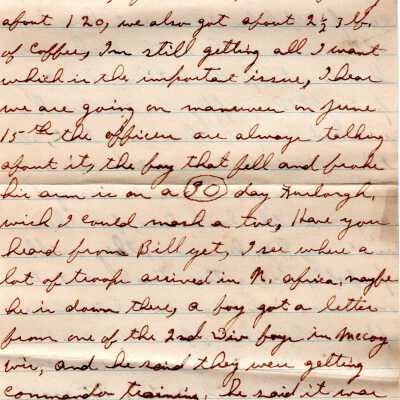 about 120, we also got about 2 1/2 3 lb.
of Coffee, I'm still getting all I want
which is the important issue, I hear
we are going on manuever on June
15th the officers are always talking
about it, the boy that fell and broke
his arm is on a 30 day Furlough,
wish I could mash a toe, Have you
heard from Bill yet, I see where a
lot of troops arrived in N. Africa, maybe
he is down there, a boy got a letter
from one of the 2nd Div boys in McCoy
wis, and he said they were getting
commandor training, he said it was